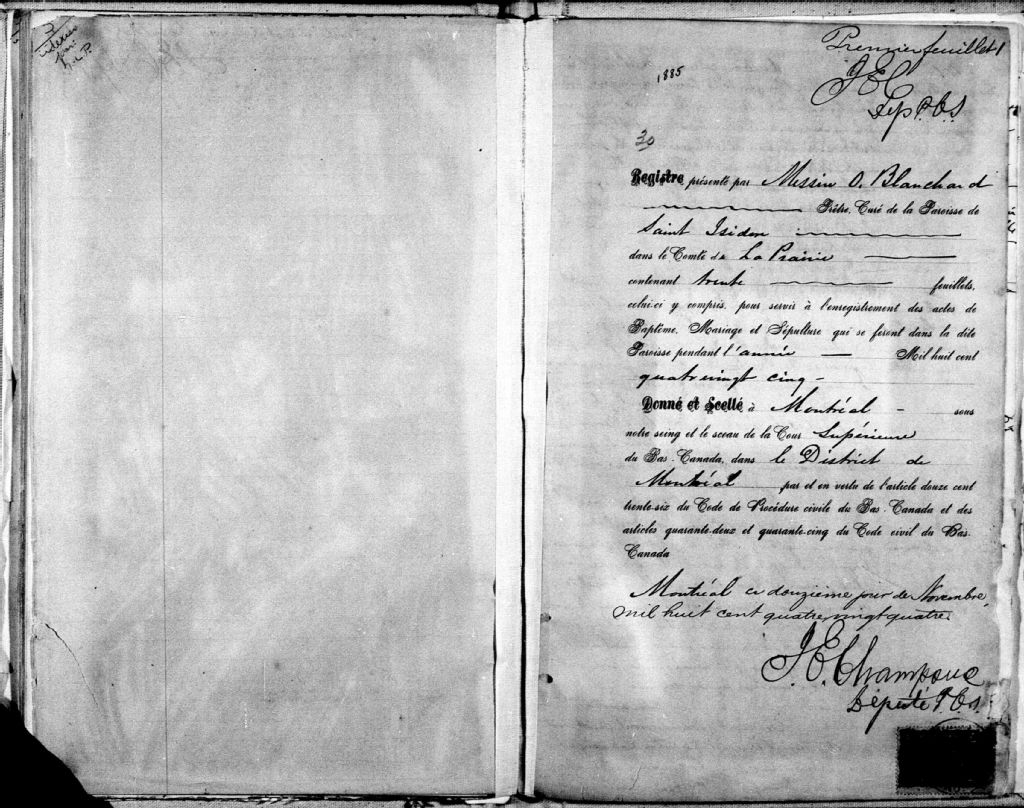 3
indexer
par
Premier feuillet 1
J E C
Dép. P.C.S.
1885
30
Registre présenté par Messire O. Blanchard
Prêtre, Curé de la Paroisse de
Saint Isidore
dans le Comté de La Prairie
contenant trente feuillets,
celui-ci y compris, pour servir à l'enregistrement des actes de
Baptême, Mariage et Sépulture qui se feront dans la dite
Paroisse pendant l'année Mil huit cent
quatrevingt cinq -
Donné et Scellé à Montréal - sous
notre seing et le sceau de la Cour Supérieure
du Bas-Canada, dans le District de
Montréal par et en vertu de l'article douze cent
trente-six du Code de Procédure civile du Bas-Canada et des
articles quarante-deux et quarante-cinq du Code civil du Bas-
Canada
Montréal ce douzième jour de Novembre,
mil huit cent quatre vingt quatre.
J. E. Champoux
Député P.C.S.